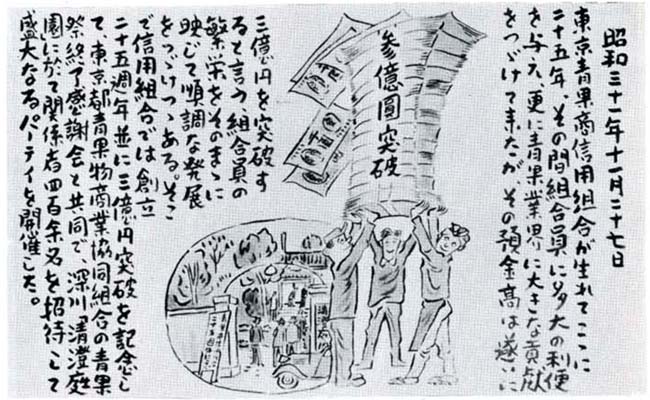 昭和三十一年十一月二十七日
東京青果商信用組合が生れてここに
二十五年、その間組合員に多大の利便
を与え、更に青果業界に大きな貢献
をつゞけて来たが、その預金高は遂に
参億圓突破
三億円を突破す
ると言う、組合員の
繁栄をそのまゝに
映じて順調な発展
をつゞけつゝある。そこ
で信用組合では創立
二十五週年並に三億円突破を記念し
て、東京都青果物商業協同組合の青果
祭終了感謝会と共同で、深川「清澄庭
園に於て関係者四百余名を招待して
盛大なるパーティを開催した。